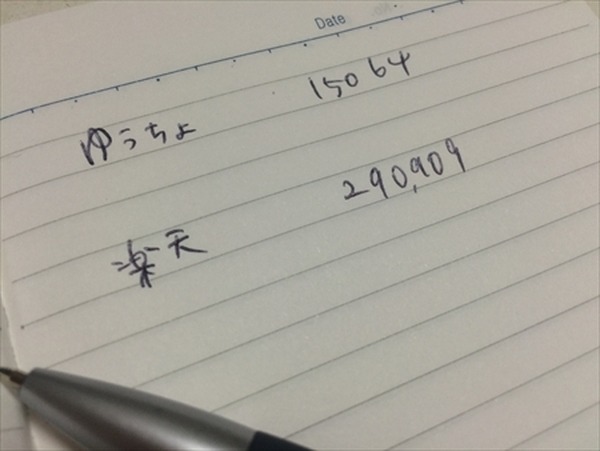 Date
ゆうちょ 15064
楽天 290,909